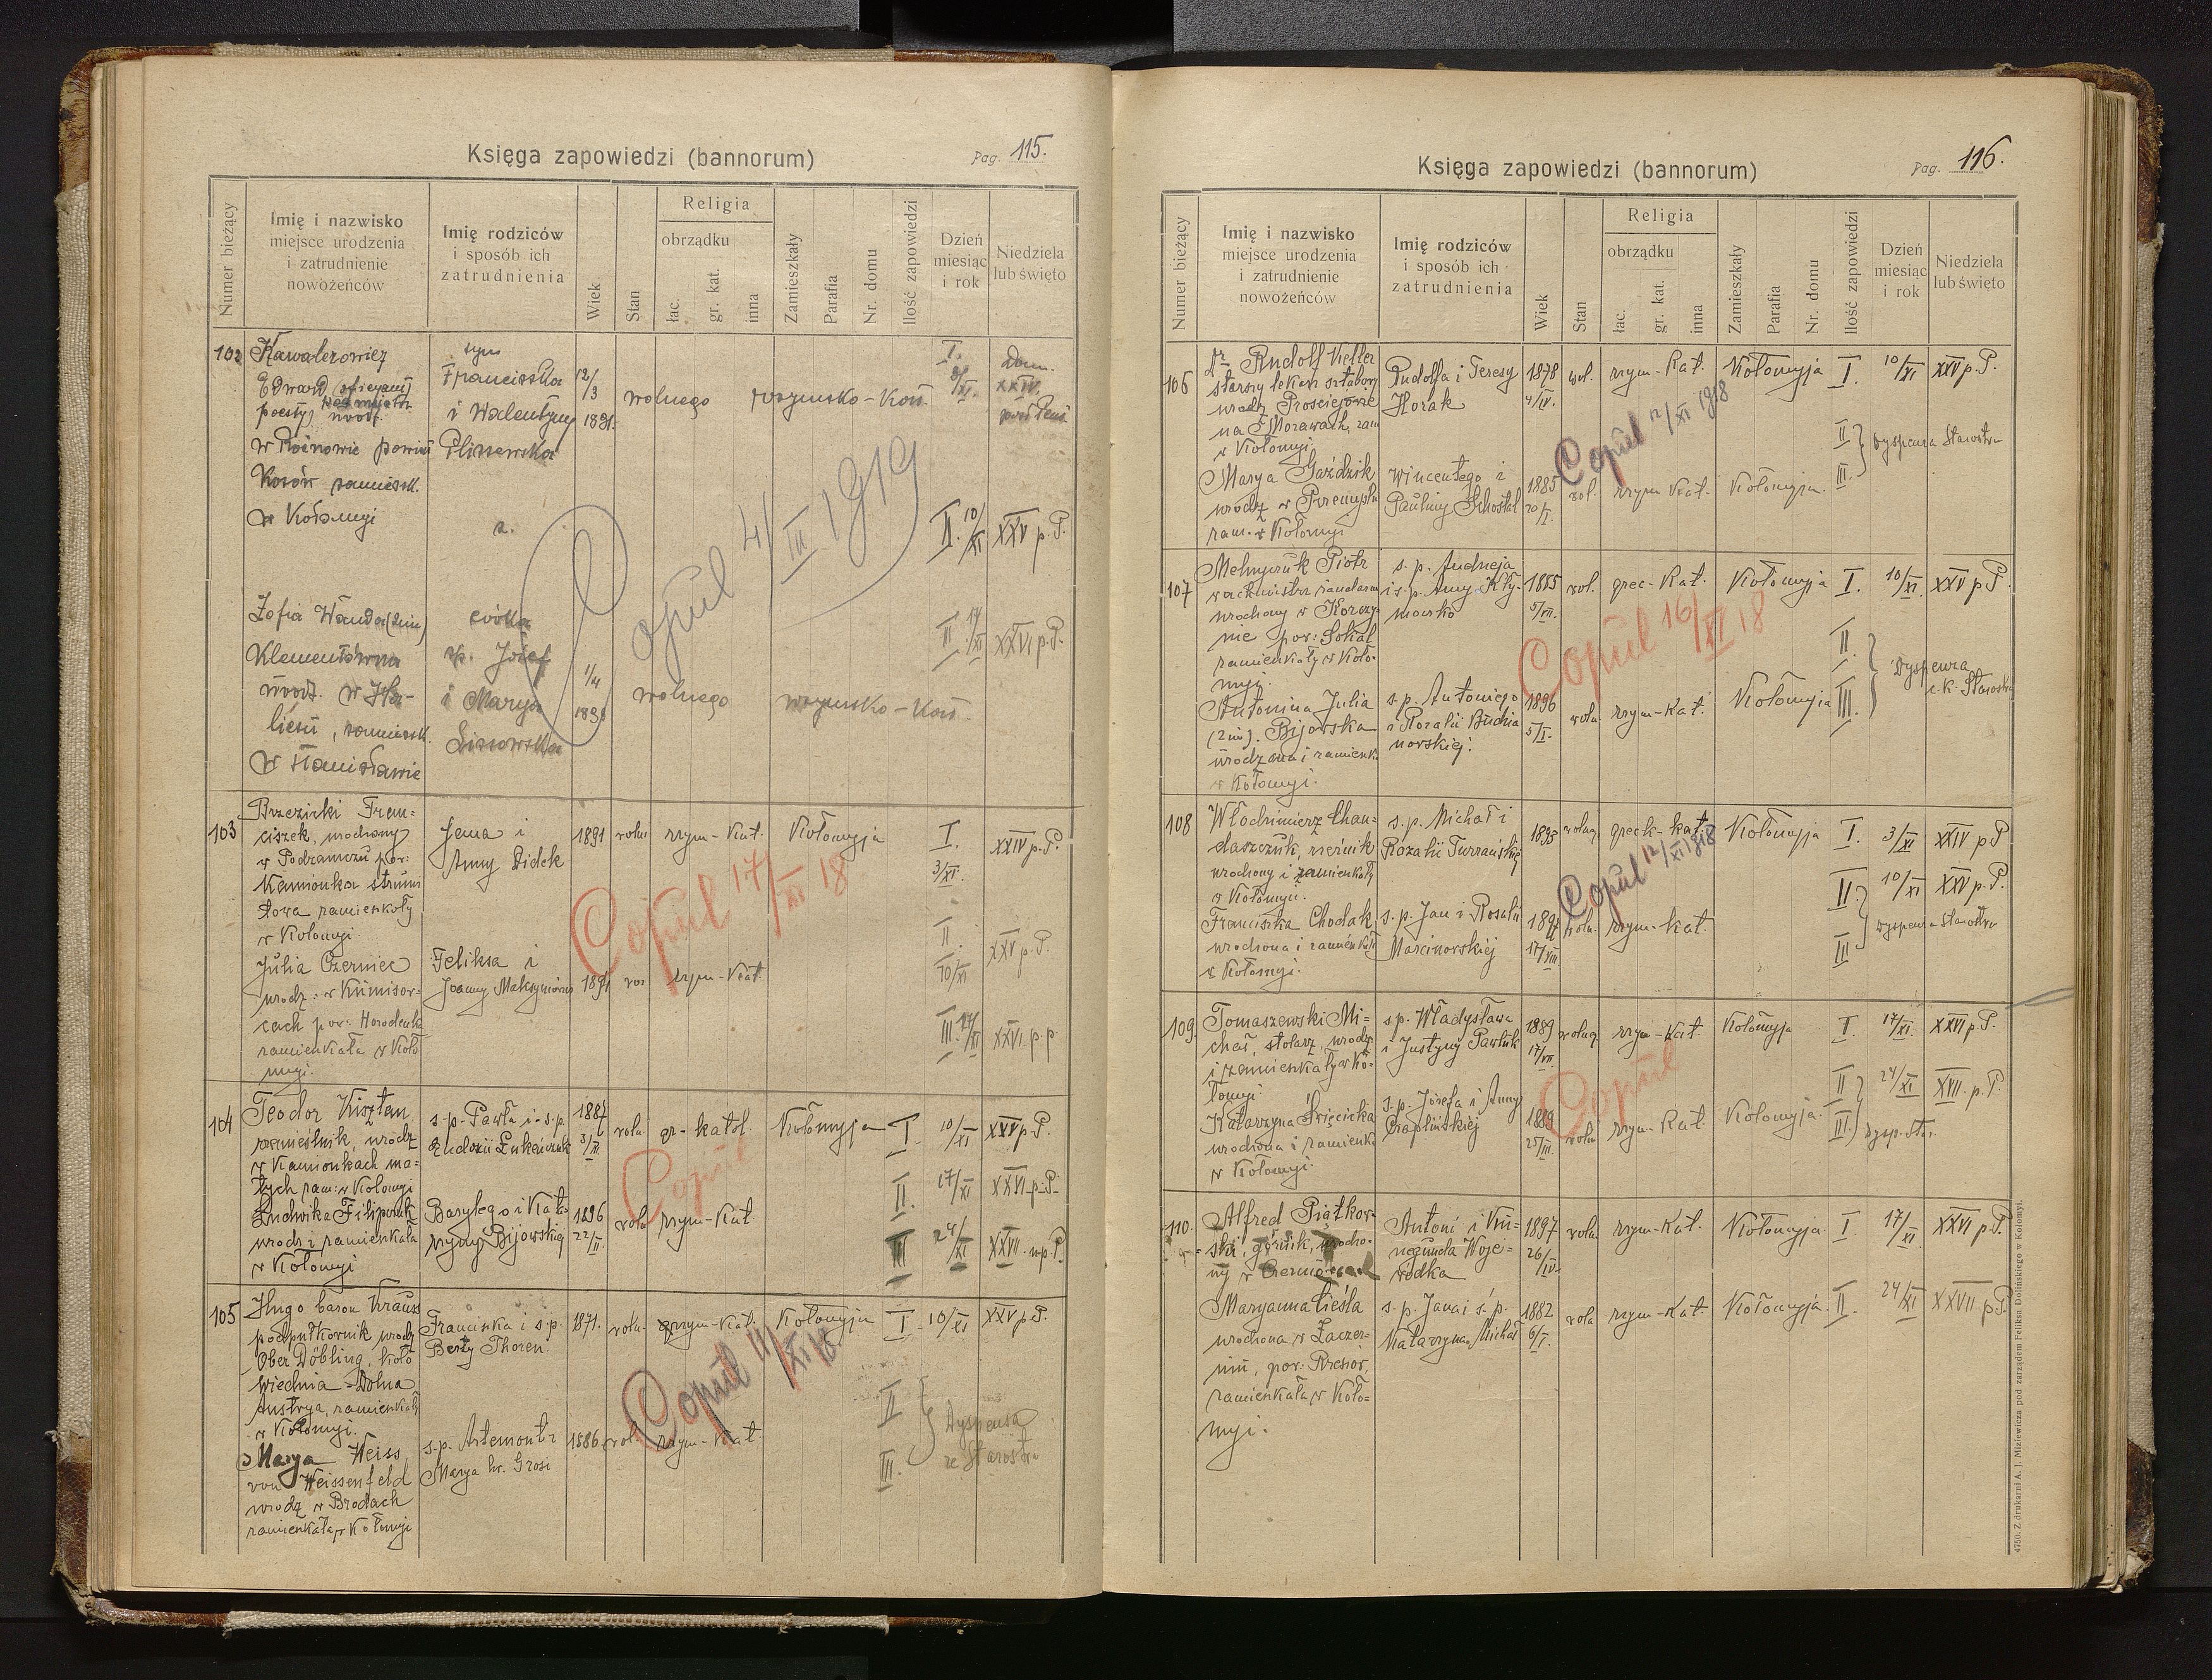 Księga zapowiedzi (bannorum)
Pag. 115.
Numer bieżący
Imię i nazwisko
miejsce urodzenia
i zatrudnienie
nowożeńców
Imię rodziców
i sposób ich
zatrudnienia
Wiek
Stan
Religia
obrządku
łac.
gr. kat.
inna
Zamieszkały
Parafia
Nr. domu
Ilość zapowiedzi
Dzień
miesiąc
i rok
Niedziela
lub święto
102
Kawalerowicz
Edward oficyant
poczty
w Rożnowie powiat
Kosów zamieszk.
w Kołomyi
syn
Franciszka
i Walentyny
Pliszewska
12/3
1891.
wolnego
rzymsko-kat.
I. 3/XI. Dom. XXIV.
II. 10/XI XXV p. P.
Zofia Wanda (2im)
Klementówna
urodz. w Ha-
liczu, zamieszk.
w Stanisławie
córka
sp. Józef
i Marya
Lissowska
1/4
wolnego
rzymsko-kat.
III 17/XI XXVI p. P.
Copul 4/III 1919
103
Brzezicki Fran-
ciszek, urodzony
w Podzamczu pow:
Kamionka strumi
łowa zamieszkały
w Kołomyi
Jana i
Anny Didek
1891
woln.
rzym-kat.
Kołomyja
I.
3/XI.
XXIV p. P.
Julia Czerniec
urodz: w Kunisow-
cach pow: Horodenka
zamieszkała w Koło
myi.
Feliksa i
Joanny Maksymowicz
1891
rzym-kat.
II
10/XI
XXV p. P.
III 17/XI XXVI p. p
Copul 17/XI 18
104
Teodor Kisztan
rzemieślnik, urodz
w Kamionkach ma-
łych zam: w Kołomyi
s.p. Pawła i s.p.
Eudozii Łukańczuk
1887
3/II
woln
gr-katol.
Kołomyja
I 10/XI XXV p P.
Ludwika Filipczuk
urodz i zamieszkała
w Kołomyi
Barylego i Kata-
rzyny Bijowskiej
1896
22/II
woln
rzym-kat
II. 17/XI XXVI p. P.
III 24/XI XXVII p. P.
Copul
105
Hugo baron Kraus
podpułkownik urodz
Ober Döbling, koło
Wiednia - Dolna
Austrya, zamieszkały
w Kołomyi.
Franciszka i s.p.
Berty Thoren
1871.
woln.
rzym-kat.
Kołomyja
I 10/XI XXV p. P.
Marya Weiss
von Weissenfeld
urodz w Brodach
zamieszkała w Kołomyi
s.p. Artemont i
Marya hr. Grosi
1886
wol.
rzym-kat.
II
III.
Dyspensa
ze Starostw
Copul 11/XI 18.
Księga zapowiedzi (bannorum)
Pag. 116.
Numer bieżący
Imię i nazwisko
miejsce urodzenia
i zatrudnienie
nowożeńców
Imię rodziców
i sposób ich
zatrudnienia
Wiek
Stan
Religia
obrządku
łac.
gr. kat.
inna
Zamieszkały
Parafia
Nr. domu
Ilość zapowiedzi
Dzień
miesiąc
i rok
Niedziela
lub święto
106
Dr. Rudolf Keller
starszy lekarz sztabowy
urodz Prosciejowie
na Morawach, zam
w Kołomyi.
Rudolfa i Teresy
Horak
1878
4/IV.
wol.
rzym-kat.
Kołomyja
I. 10/XI XXV p. P.
Marya Gaździk
urodz w Przemyślu
zam. w Kołomyi
Wincentego i
Pauliny Schostal
1885
20/I.
wol.
rzym kat.
Kołomyja.
II
III.
Dyspensa Starostw
Copul 12/XI 1918
107
Melnyczuk Piotr
wachmistrz żandarm
urodzony w Korczy-
nie pow: Sokal
zamieszkały w Koło-
myi.
s.p. Andrzeja
i s.p. Anny Kły-
mowsko
1885
5/VII.
wol.
grec-kat.
Kołomyja
I. 10/XI. XXV p P.
Antonina Julia
(2im). Bijowska
urodzona i zamieszk.
w Kołomyi.
s.p. Antoniego
i Rozalii Budzia
nowskiej.
1896
5/I.
woln
rzym-kat.
Kołomyja
II.
III.
Dyspensa
c.k. Starostw
Copul 16/XI 18
108
Włodzimierz Chan-
daszczuk, rzeźnik
urodzony i zamieszkały
w Kołomyi.
s.p. Michał i
Rozalii Turzańskiej
wolny
greck-kat.
Kołomyja
I. 3/XI XXIV p P
Franciszka Chodak
urodzona i zamieszkała
w Kołomyi.
s.p. Jan i Rozalii
Marcinowskiej
17/XII
woln.
rzym-kat.
II. 10/XI XXV p. P.
III
Dyspensa Starostw
Copul 12/XI 1918
109.
Tomaszewski Mi-
chał, stolarz, urodz
i zamieszkały w Ko-
łomyi.
s.p. Władysława
i Justyny Pawluk
1889
17/VII
wolny
rzym-kat
Kołomyja
I. 17/XI. XXVI p. P.
Katarzyna Święcicka
urodzona i zamieszk.
w Kołomyi.
s.p. Józefa i Anny
Czaplińskiej
1889
25/III.
woln
rzym-kat.
Kołomyja.
II 24/XI XXVII. p. P.
III. Dysp. Star.
Copul
110.
Alfred Piątkow-
ski, górnik, urodzo-
ny w
Antoni i Ku-
negunda Woje-
wódka
1897
26/IV.
woln
rzym-kat.
Kołomyja.
I 17/XI XXVI p. P.
Maryanna Cieśla
urodzona w Zaczer-
niu, pow: Rzeszów,
zamieszkała w Koło-
myi.
s.p. Jana i s.p.
Katarzyna Michał
1882
6/I.
woln
rzym-kat.
Kołomyja.
II. 24/XI XXVII p. P.
4750. Z drukarni A. J. Miziewicza pod zarządem Feliksa Dolińskiego w Kołomyi.